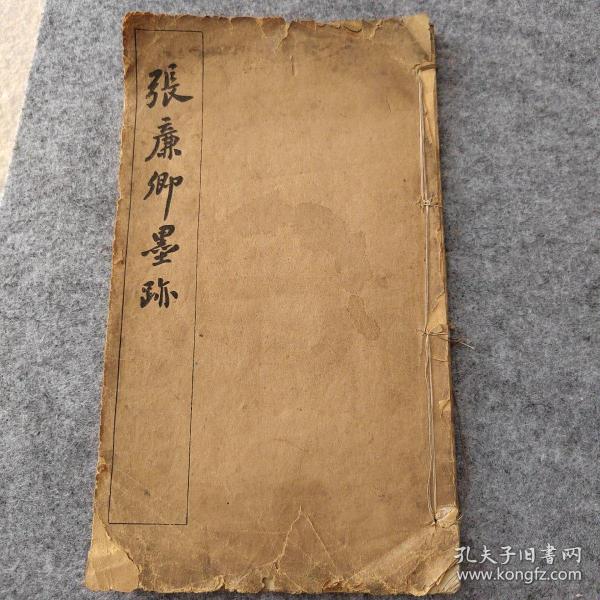 張廉卿墨跡
孔夫子旧書网
www.kongfz.com